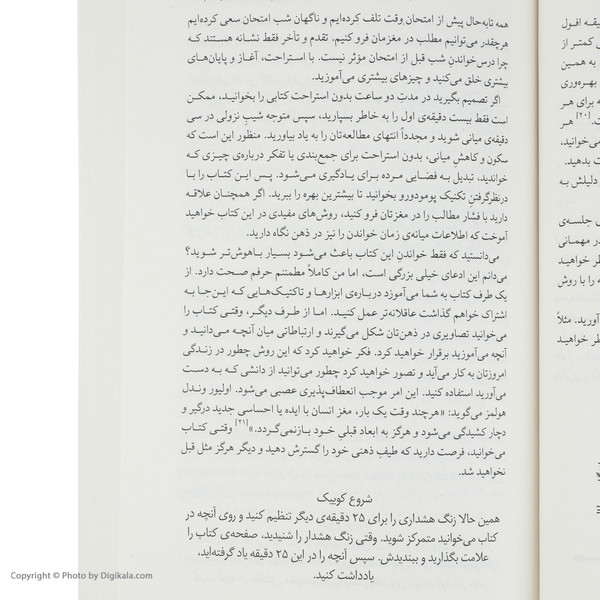 همه تابه‌حال پیش از امتحان وقت تلف کرده‌ایم و ناگهان شب امتحان سعی کرده‌ایم
هرچقدر می‌توانیم مطلب در مغزمان فرو کنیم. تقدم و تأخر فقط نشانه هستند که
چرا درس‌خواندنِ شب قبل از امتحان مؤثر نیست. با استراحت، آغاز و پایان‌های
بیشتری خلق می‌کنید و چیزهای بیشتری می‌آموزید.
اگر تصمیم بگیرید در مدتِ دو ساعت بدون استراحت کتابی را بخوانید، ممکن
است فقط بیست دقیقه‌ی اول را به خاطر بسپارید، سپس متوجه شیبِ نزولی در سی
دقیقه‌ی میانی شوید و مجدداً انتهای مطالعه‌تان را به یاد بیاورید. منظور این است که
سکون و کاهشِ میانی، بدون استراحت برای جمع‌بندی یا تفکر درباره‌ی چیزی که
خواندید، تبدیل به فضایی مرده برای یادگیری می‌شود. پس این کتاب را با
درنظرگرفتنِ تکنیک پومودورو بخوانید تا بیشترین بهره را ببرید. اگر همچنان علاقه
دارید با فشار مطالب را در مغزتان فرو کنید، روش‌های مفیدی در این کتاب خواهید
آموخت که اطلاعات میانه‌ی زمان خواندن را نیز در ذهن نگاه دارید.
می‌دانستید که فقط خواندنِ این کتاب باعث می‌شود بسیار باهوش‌تر شوید؟
می‌دانم این ادعای خیلی بزرگی است، اما من کاملاً مطمئنم حرفم صحت دارد. از
یک طرف کتاب به شما می‌آموزد درباره‌ی ابزارها و تاکتیک‌هایی که این‌جا به
اشتراک خواهم گذاشت عاقلانه‌تر عمل کنید. اما از طرف دیگر، وقتی کتاب را
می‌خوانید تصاویری در ذهن‌تان شکل می‌گیرند و ارتباطاتی میان آنچه می‌دانید و
آنچه می‌آموزید برقرار خواهید کرد. فکر خواهید کرد که این روش چطور در زندگی
امروزتان به کار می‌آید و تصور خواهید کرد چطور می‌توانید از دانشی که به دست
می‌آورید استفاده کنید. این امر موجب انعطاف‌پذیری عصبی می‌شود. اولیور وندل
هولمز می‌گوید: «هرچند وقت یک بار، مغز انسان با ایده یا احساسی جدید درگیر و
دچار کشیدگی می‌شود و هرگز به ابعاد قبلیِ خود بازنمی‌گردد.»[۲۱] وقتی کتاب
می‌خوانید، فرصت دارید که طیفِ ذهنی خود را گسترش دهید و دیگر هرگز مثل قبل
نخواهید شد.
شروع کوییک
همین حالا زنگ هشداری را برای ۲۵ دقیقه‌ی دیگر تنظیم کنید و روی آنچه در
کتاب می‌خوانید متمرکز شوید. وقتی زنگ هشدار را شنیدید، صفحه‌ی کتاب را
علامت بگذارید و ببندیدش. سپس آنچه را در این ۲۵ دقیقه یاد گرفته‌اید،
یادداشت کنید.
Copyright © Photo by Digikala.com